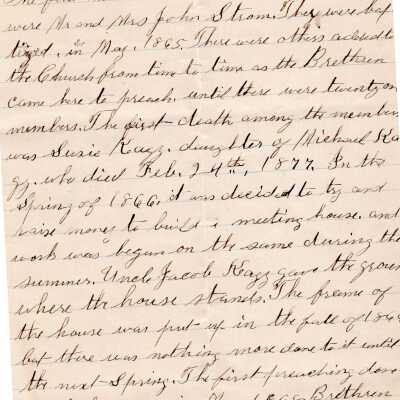 were Mr and Mrs John Strom. They were bap
tized, in May, 1865. There were others added to
the Church from time to time as the Brethren
came here to preach, until there were twenty on
members. The first death among the member
was Susie Kagy, daughter of Michael Ka
gy, who died Feb. 24th, 1877. In the
Spring of 1866, it was decided to try and
raise money to build a meeting house, and
work was begun on the same during the
summer. Uncle Jacob Kagy gave the groun
where the house stands. The frame of
the house was put up in the fall of 186
but there was nothing more done to it until
the next Spring. The first preaching don
Brethren